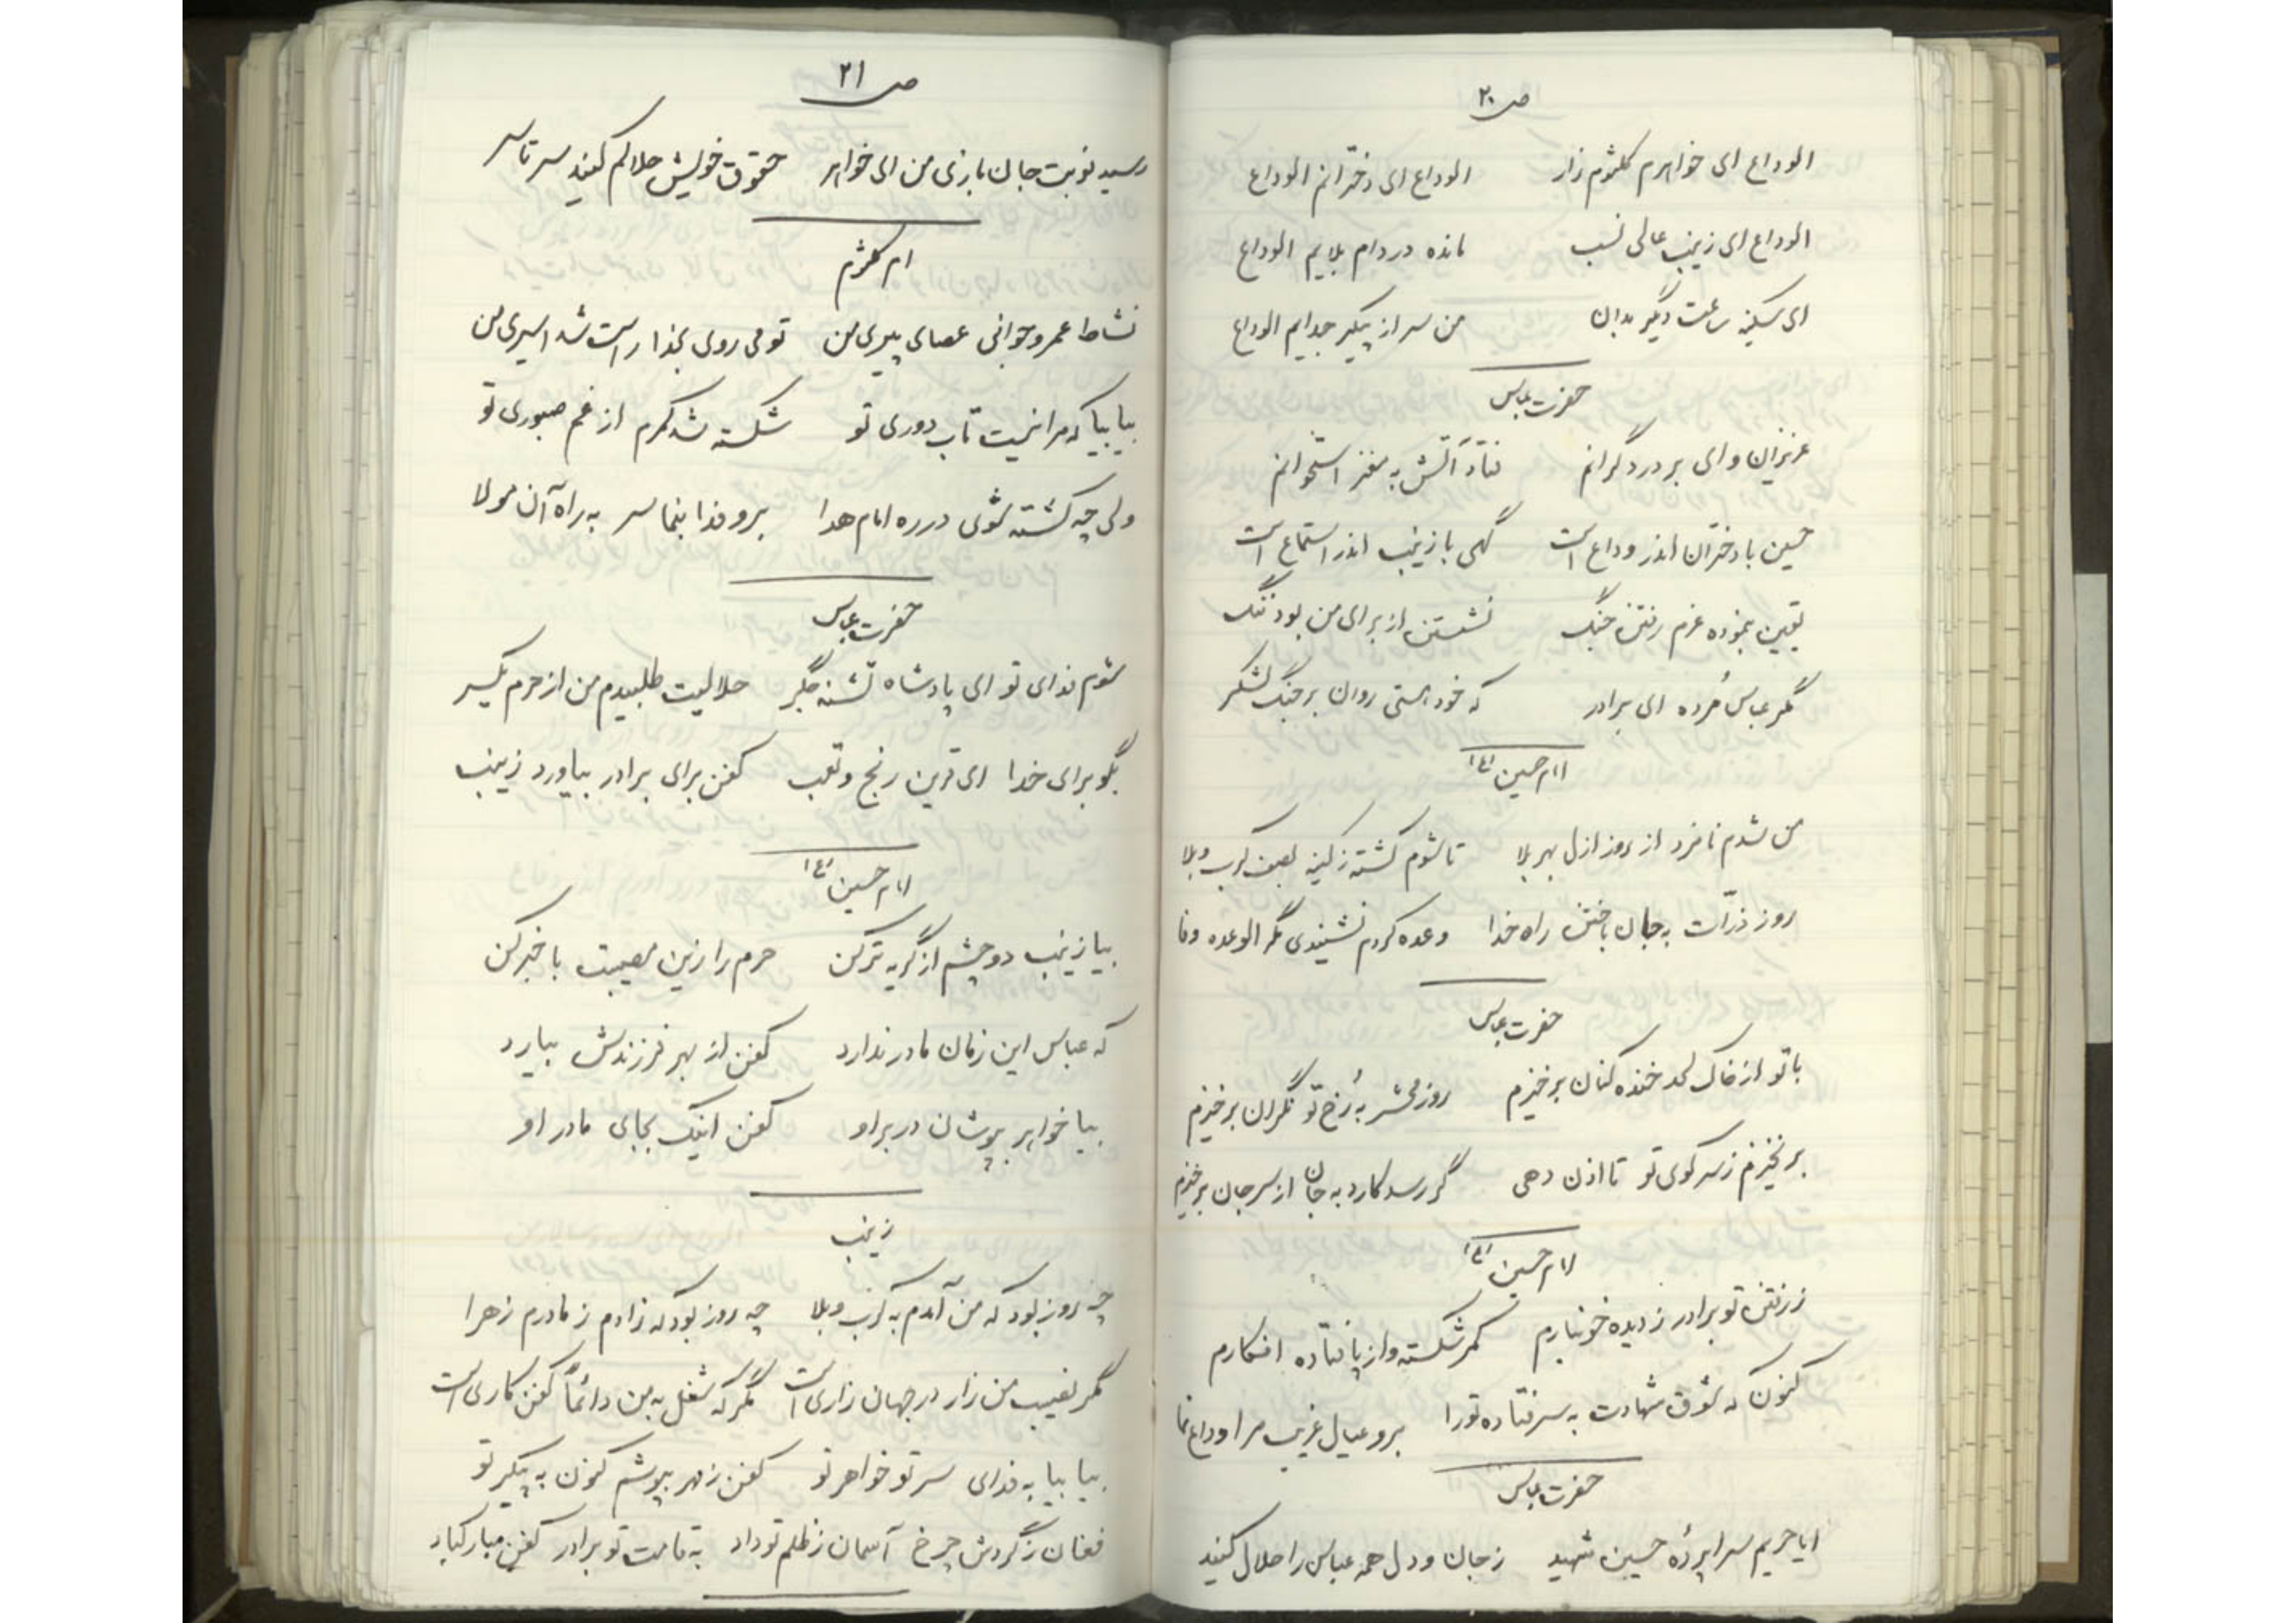 ص ۲۰
الوداع ای خواهرم کلثوم زار الوداع ای دخترانم الوداع
الوداع ای زینب عالی نسب مانده در دام بلایم الوداع
ای سکینه ساعت دیگر بدان من سر از پیکر جدایم الوداع
حضرت عباس
عزیزان وای بر درد گرانم فتاد آتش به مغز استخوانم
حسین با دختران اندر وداع است گهی با زینب اندر استماع است
یقین بنموده عزم رفتن جنگ نشستن از برای من بود ننگ
مگر عباس مُرده ای برادر که خود هستی روان بر جنگ لشگر
امام حسین (ع)
من شدم نامزد از روز ازل بهر بلا تا شوم کشته ز کینه بصف کرب وبلا
روز ذرّات به جان باختن راه خدا وعده کردم نشنیدی مگر الوعده وفا
حضرت عباس
با تو از خاک لحد خنده کنان برخیزم روز محشر به رُخ تو نگران برخیزم
برنخیزم ز سر کوی تو تا اذن دهی گر رسد کارد به جان از سر جان برخیزم
امام حسین (ع)
ز رفتن تو برادر ز دیده خونبارم کمر شکسته و از پا فتاده افکارم
کنون که شوق شهادت به سر فتاده تو را برو عیال غریب مرا وداع نما
حضرت عباس
ایا حریم سراپردهٔ حسین شهید ز جان و دل همه عباس را حلال کنید
ص ۲۱
رسید نوبت جان بازی من ای خواهر حقوق خویش حلالم کنید سر تا سر
ام کلثوم
نشاط عمر و جوانی عصای پیری من تو می روی بخدا راست شد اسیری من
بیا بیا که مرا نیست تاب دوری تو شکسته شد کمرم از غم صبوری تو
ولی چه کشته شوی در ره امام هدا برو فدا بنما سر به راه آن مولا
حضرت عباس
شوم فدای تو ای پادشاه تشنه جگر حلالیت طلبیدم من از حرم یکسر
بگو برای خدا ای قرین رنج و تعب کفن برای برادر بیاورد زینب
امام حسین (ع)
بیا زینب دو چشم از گریه تر کن حرم را زین مصیبت با خبر کن
که عباس این زمان مادر ندارد کفن از بهر فرزندش بیارد
بیا خواهر بپوشان در بر او کفن اینک بجای مادر او
زینب
چه روز بود که من آمدم به کرب وبلا چه روز بود که زادم ز مادرم زهرا
مگر نصیب من زار در جهان زاری است مگر که شغل به من دائماً کفن کاری است
بیا بیا به فدای سر تو خواهر تو کفن ز مهر بپوشم کنون به پیکر تو
فغان ز گردش چرخ آسمان ز ظلم تو داد به قامت تو برادر کفن مبارکباد